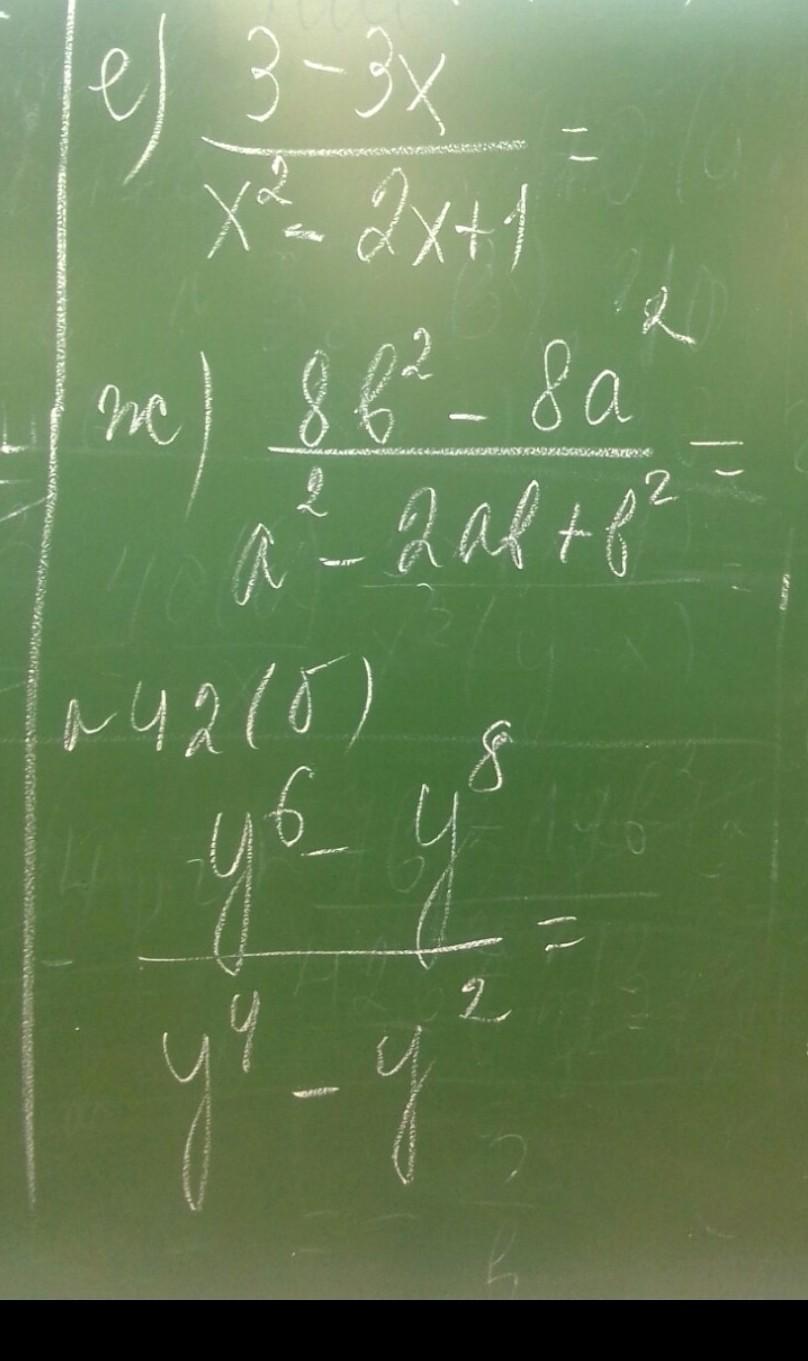 е) 3 - 3x
x² - 2x + 1 =
ж) 8b² - 8a²
a² - 2ab + b² =
~42(б)
y⁶ - y⁸
y⁴ - y² =